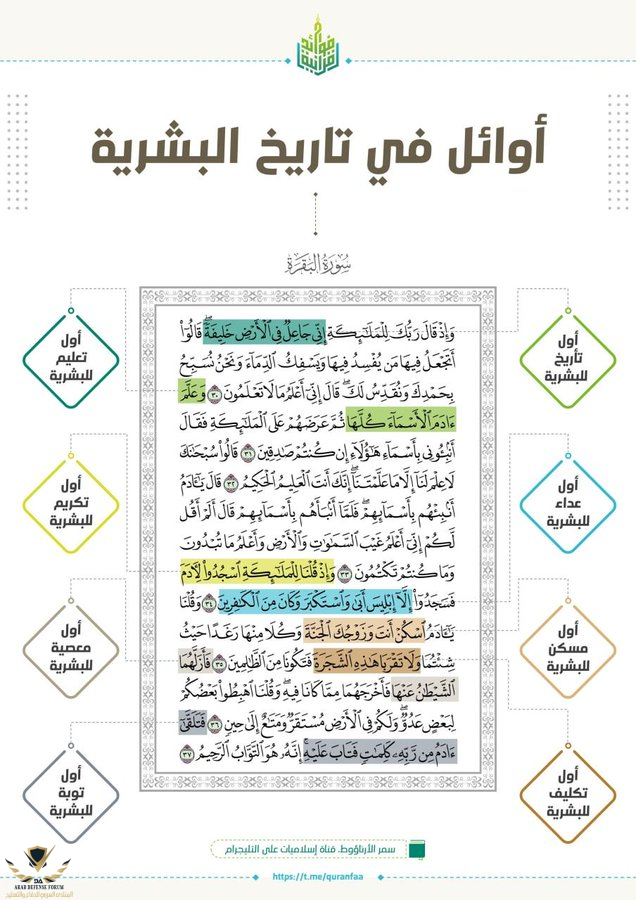 فوائد
قرآنية
أوائل في تاريخ البشرية
سُورَةُ البَقَرَةِ
أول
تأريخ
للبشرية
أول
عداء
للبشرية
أول
مسكن
للبشرية
أول
تكليف
للبشرية
وَإِذْ قَالَ رَبُّكَ لِلْمَلَٰٓئِكَةِ إِنِّى جَاعِلٌ فِى ٱلْأَرْضِ خَلِيفَةً ۖ قَالُوٓا۟
أَتَجْعَلُ فِيهَا مَن يُفْسِدُ فِيهَا وَيَسْفِكُ ٱلدِّمَآءَ وَنَحْنُ نُسَبِّحُ
بِحَمْدِكَ وَنُقَدِّسُ لَكَ ۖ قَالَ إِنِّىٓ أَعْلَمُ مَا لَا تَعْلَمُونَ ٣٠ وَعَلَّمَ
ءَادَمَ ٱلْأَسْمَآءَ كُلَّهَا ثُمَّ عَرَضَهُمْ عَلَى ٱلْمَلَٰٓئِكَةِ فَقَالَ
أَنۢبِـُٔونِى بِأَسْمَآءِ هَٰٓؤُلَآءِ إِن كُنتُمْ صَٰدِقِينَ ٣١ قَالُوا۟ سُبْحَٰنَكَ
لَا عِلْمَ لَنَآ إِلَّا مَا عَلَّمْتَنَآ ۖ إِنَّكَ أَنتَ ٱلْعَلِيمُ ٱلْحَكِيمُ ٣٢ قَالَ يَٰٓـَٔادَمُ
أَنۢبِئْهُم بِأَسْمَآئِهِمْ ۖ فَلَمَّآ أَنۢبَأَهُم بِأَسْمَآئِهِمْ قَالَ أَلَمْ أَقُل
لَّكُمْ إِنِّىٓ أَعْلَمُ غَيْبَ ٱلسَّمَٰوَٰتِ وَٱلْأَرْضِ وَأَعْلَمُ مَا تُبْدُونَ
وَمَا كُنتُمْ تَكْتُمُونَ ٣٣ وَإِذْ قُلْنَا لِلْمَلَٰٓئِكَةِ ٱسْجُدُوا۟ لِـَٔادَمَ
فَسَجَدُوٓا۟ إِلَّآ إِبْلِيسَ أَبَىٰ وَٱسْتَكْبَرَ وَكَانَ مِنَ ٱلْكَٰفِرِينَ ٣٤ وَقُلْنَا
يَٰٓـَٔادَمُ ٱسْكُنْ أَنتَ وَزَوْجُكَ ٱلْجَنَّةَ وَكُلَا مِنْهَا رَغَدًا حَيْثُ
شِئْتُمَا وَلَا تَقْرَبَا هَٰذِهِ ٱلشَّجَرَةَ فَتَكُونَا مِنَ ٱلظَّٰلِمِينَ ٣٥ فَأَزَلَّهُمَا
ٱلشَّيْطَٰنُ عَنْهَا فَأَخْرَجَهُمَا مِمَّا كَانَا فِيهِ ۖ وَقُلْنَا ٱهْبِطُوا۟ بَعْضُكُمْ
لِبَعْضٍ عَدُوٌّ ۖ وَلَكُمْ فِى ٱلْأَرْضِ مُسْتَقَرٌّ وَمَتَٰعٌ إِلَىٰ حِينٍ ٣٦ فَتَلَقَّىٰٓ
ءَادَمُ مِن رَّبِّهِۦ كَلِمَٰتٍ فَتَابَ عَلَيْهِ ۚ إِنَّهُۥ هُوَ ٱلتَّوَّابُ ٱلرَّحِيمُ ٣٧
أول
تعليم
للبشرية
أول
تكريم
للبشرية
أول
معصية
للبشرية
أول
توبة
للبشرية
سمر الأرناؤوط، قناة إسلاميات على التليجرام
https://t.me/quranfaa
DA
ARAB DEFENSE FORUM
المنتدى العربي للدفاع والتسليح